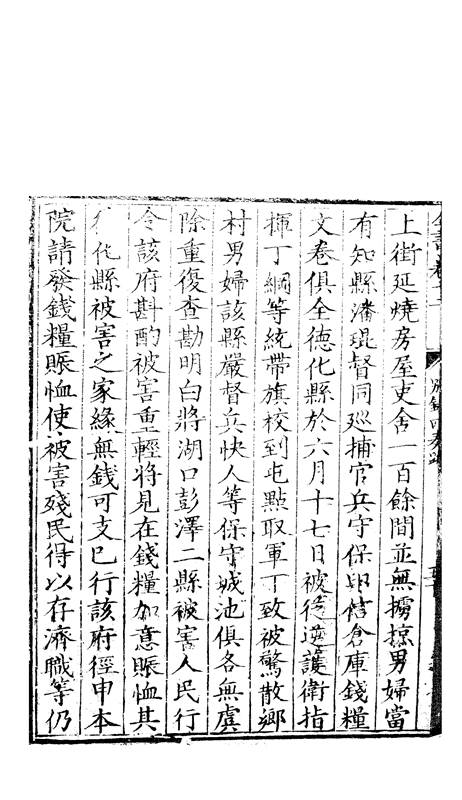 上街延燒房屋吏舍一百餘間並無擄掠男婦當
有知縣潘琨督同廵捕官兵守保印信倉庫錢糧
文卷俱全德化縣於六月十七日被從逆護衛指
揮丁綱等統帶旗校到屯點取軍丁致被驚散鄉
村男婦該縣嚴督兵快人等保守城池俱各無虞
除重復查勘明白將湖口彭澤二縣被害人民行
令該府斟酌被害重輕將見在錢糧加意賑恤其
化縣被害之家緣無錢可支已行該府徑申本
院請發錢糧賑恤使被害殘民得以存濟職等仍